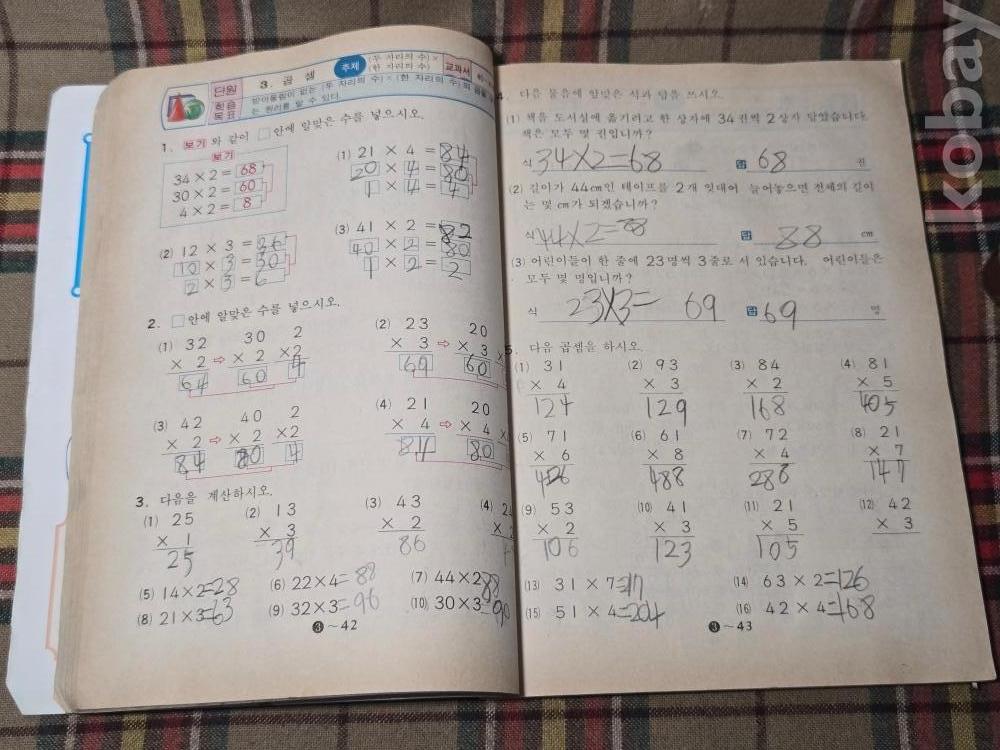 단원
학습
목표
3. 곱셈
주제
(두 자리의 수)×
(한 자리의 수)
교과서
받아올림이 없는 (두 자리의 수)×(한 자리의 수)의
는 원리를 알 수 있다.
1. 보기 와 같이 □안에 알맞은 수를 넣으시오.
보기
34 × 2 = 68
30 × 2 = 60
4 × 2 = 8
(1) 21 × 4 = 84
20 × 4 = 80
1 × 4 = 4
(2) 12 × 3 = 36
10 × 3 = 30
2 × 3 = 6
(3) 41 × 2 = 82
40 × 2 = 80
1 × 2 = 2
2. □안에 알맞은 수를 넣으시오.
(1) 32 30 2
× 2 ⇨ × 2 ×2
64 60 4
(2) 23 20
× 3 ⇨ × 3 ×
69 60
(3) 42 40 2
× 2 ⇨ × 2 ×2
84 80 4
(4) 21 20
× 4 ⇨ × 4 ×
84 80
3. 다음을 계산하시오.
(1) 25
× 1
25
(2) 13
× 3
39
(3) 43
× 2
86
(4)
(5) 14×2=28
(6) 22×4=88
(7) 44×2 88
(8) 21×3=63
(9) 32×3=96
(10) 30×3=90
❸~42
4. 다음 물음에 알맞은 식과 답을 쓰시오.
(1) 책을 도서실에 옮기려고 한 상자에 34권씩 2상자 담았습니다.
책은 모두 몇 권입니까?
식 34×2=68 답 68 권
(2) 길이가 44cm인 테이프를 2개 잇대어 늘어놓으면 전체의 길이
는 몇 cm가 되겠습니까?
식 44×2=88 답 88 cm
(3) 어린이들이 한 줄에 23명씩 3줄로 서 있습니다. 어린이들은
모두 몇 명입니까?
식 23×3= 69 답 69 명
5. 다음 곱셈을 하시오.
(1) 31
× 4
124
(2) 93
× 3
129
(3) 84
× 2
168
(4) 81
× 5
405
(5) 71
× 6
426
(6) 61
× 8
488
(7) 72
× 4
288
(8) 21
× 7
147
(9) 53
× 2
106
(10) 41
× 3
123
(11) 21
× 5
105
(12) 42
× 3
(13) 31×7=
(14) 63×2=126
(15) 51×4=204
(16) 42×4=168
❸~43
kobay